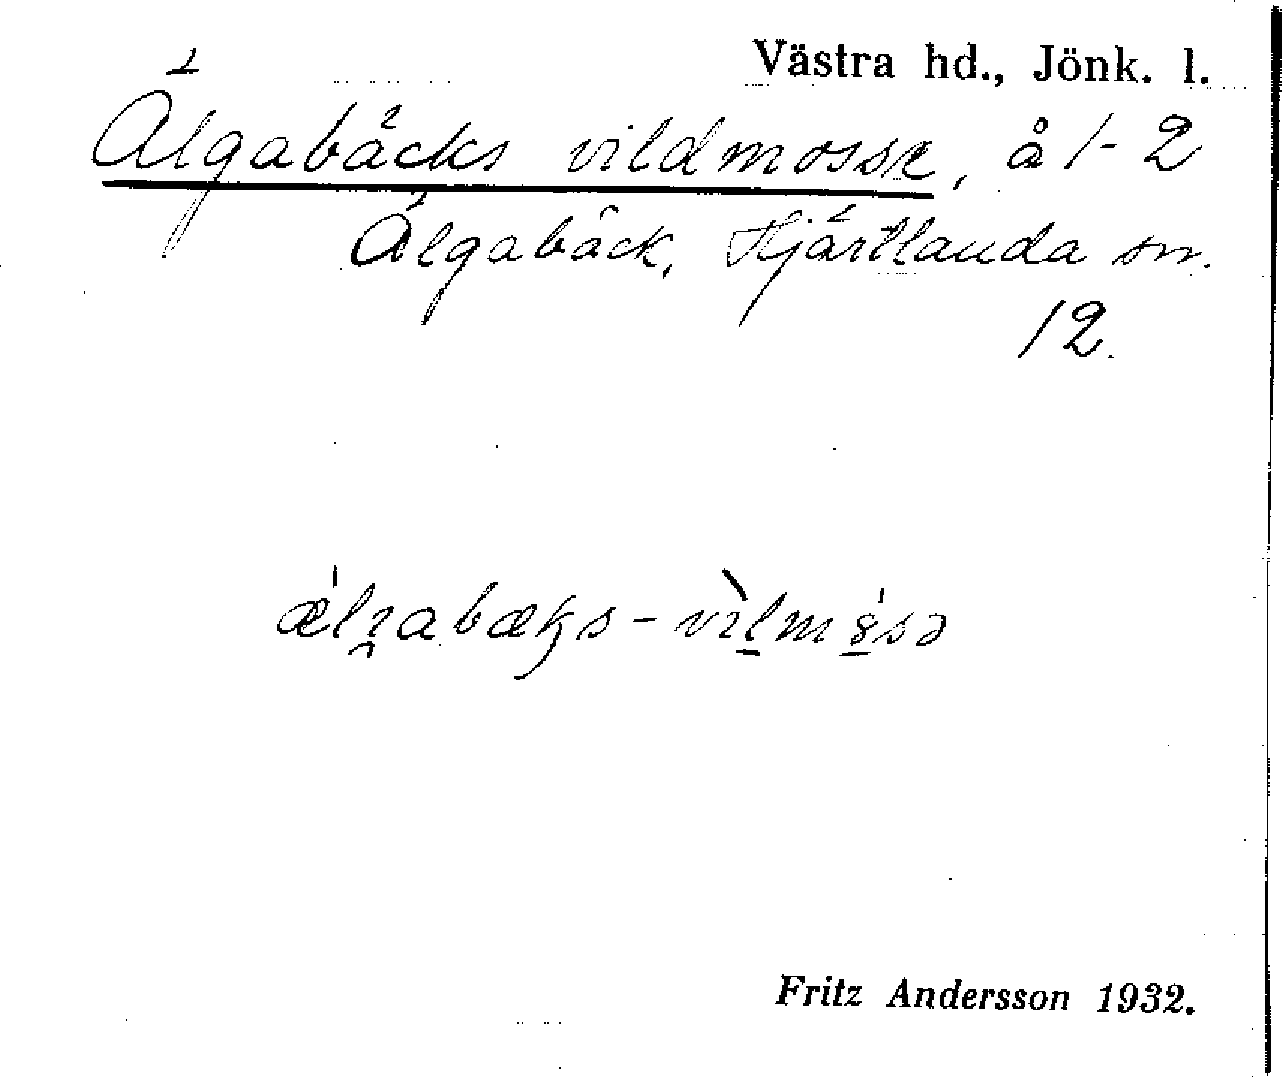 Västra hd., Jönk. l.
Älgabäcks vildmosse, å 1-2
Älgabäck, Hjärtlanda sn.
12.
æ̍lꝛabæꞣs-vìl̠mȣ̠̍sə
Fritz Andersson 1932.